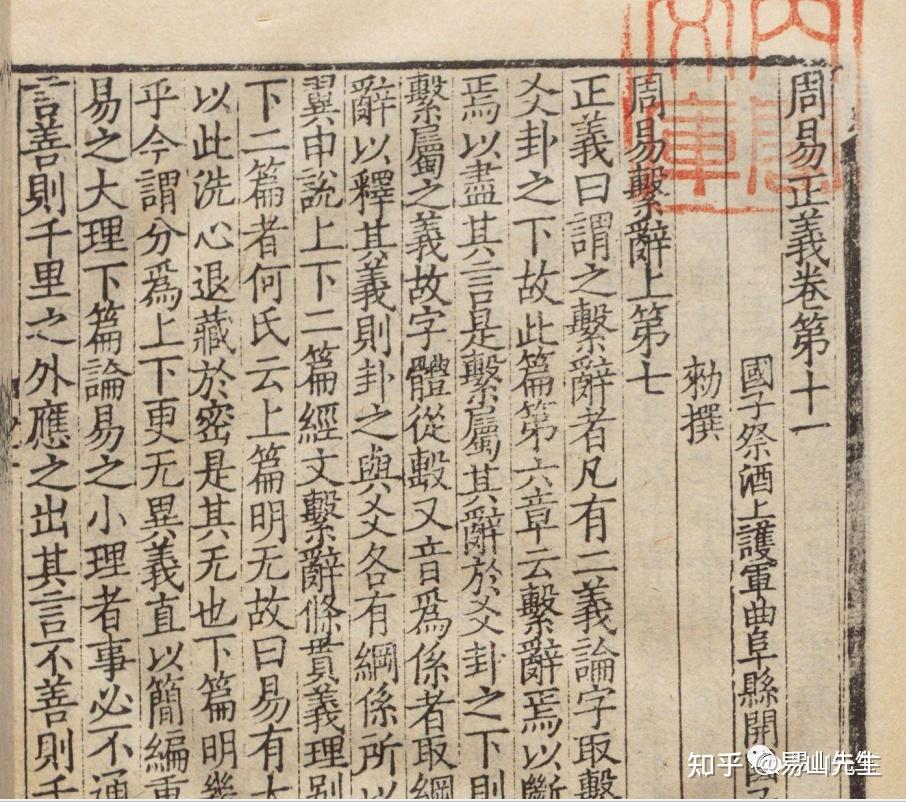 周易正義卷第十一
國子祭酒上護軍曲阜縣開國子
勑撰
周易繫辭上第七
正義曰謂之繫辭者凡有二義論字取繫
爻卦之下故此篇第六章云繫辭焉以斷
焉以盡其言是繫屬其辭於爻卦之下則
繫屬之義故字體從毄又音爲係者取綱
辭以釋其義則卦之與爻各有綱係所以
翼申說上下二篇經文繫辭條貫義理別
下二篇者何氏云上篇明无故曰易有太
以此洗心退藏於密是其无也下篇明幾
乎今謂分爲上下更无異義直以簡編重
易之大理下篇論易之小理者事必不通
言善則千里之外應之出其言不善則千
知乎 @易山先生